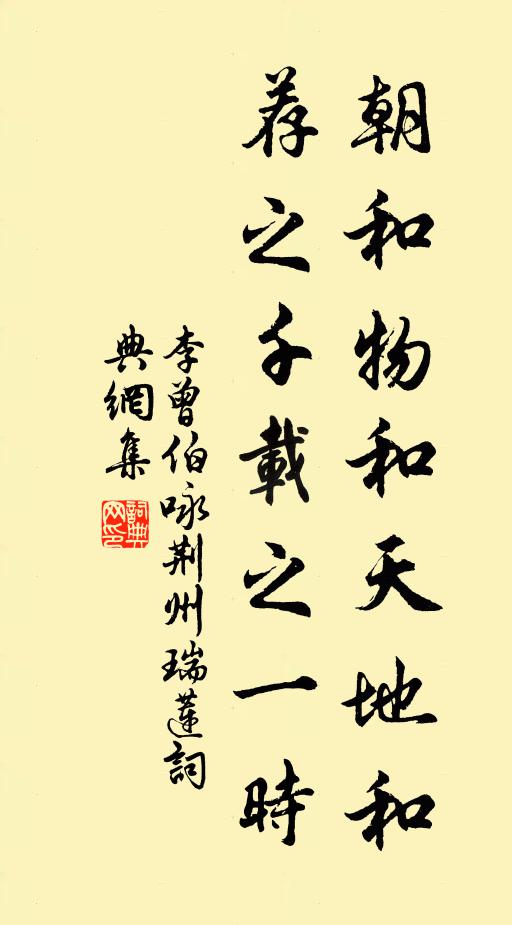 朝和物和天地和
荐之千載之一時
李曾伯咏荆州瑞莲詞
典網集
詞典网印